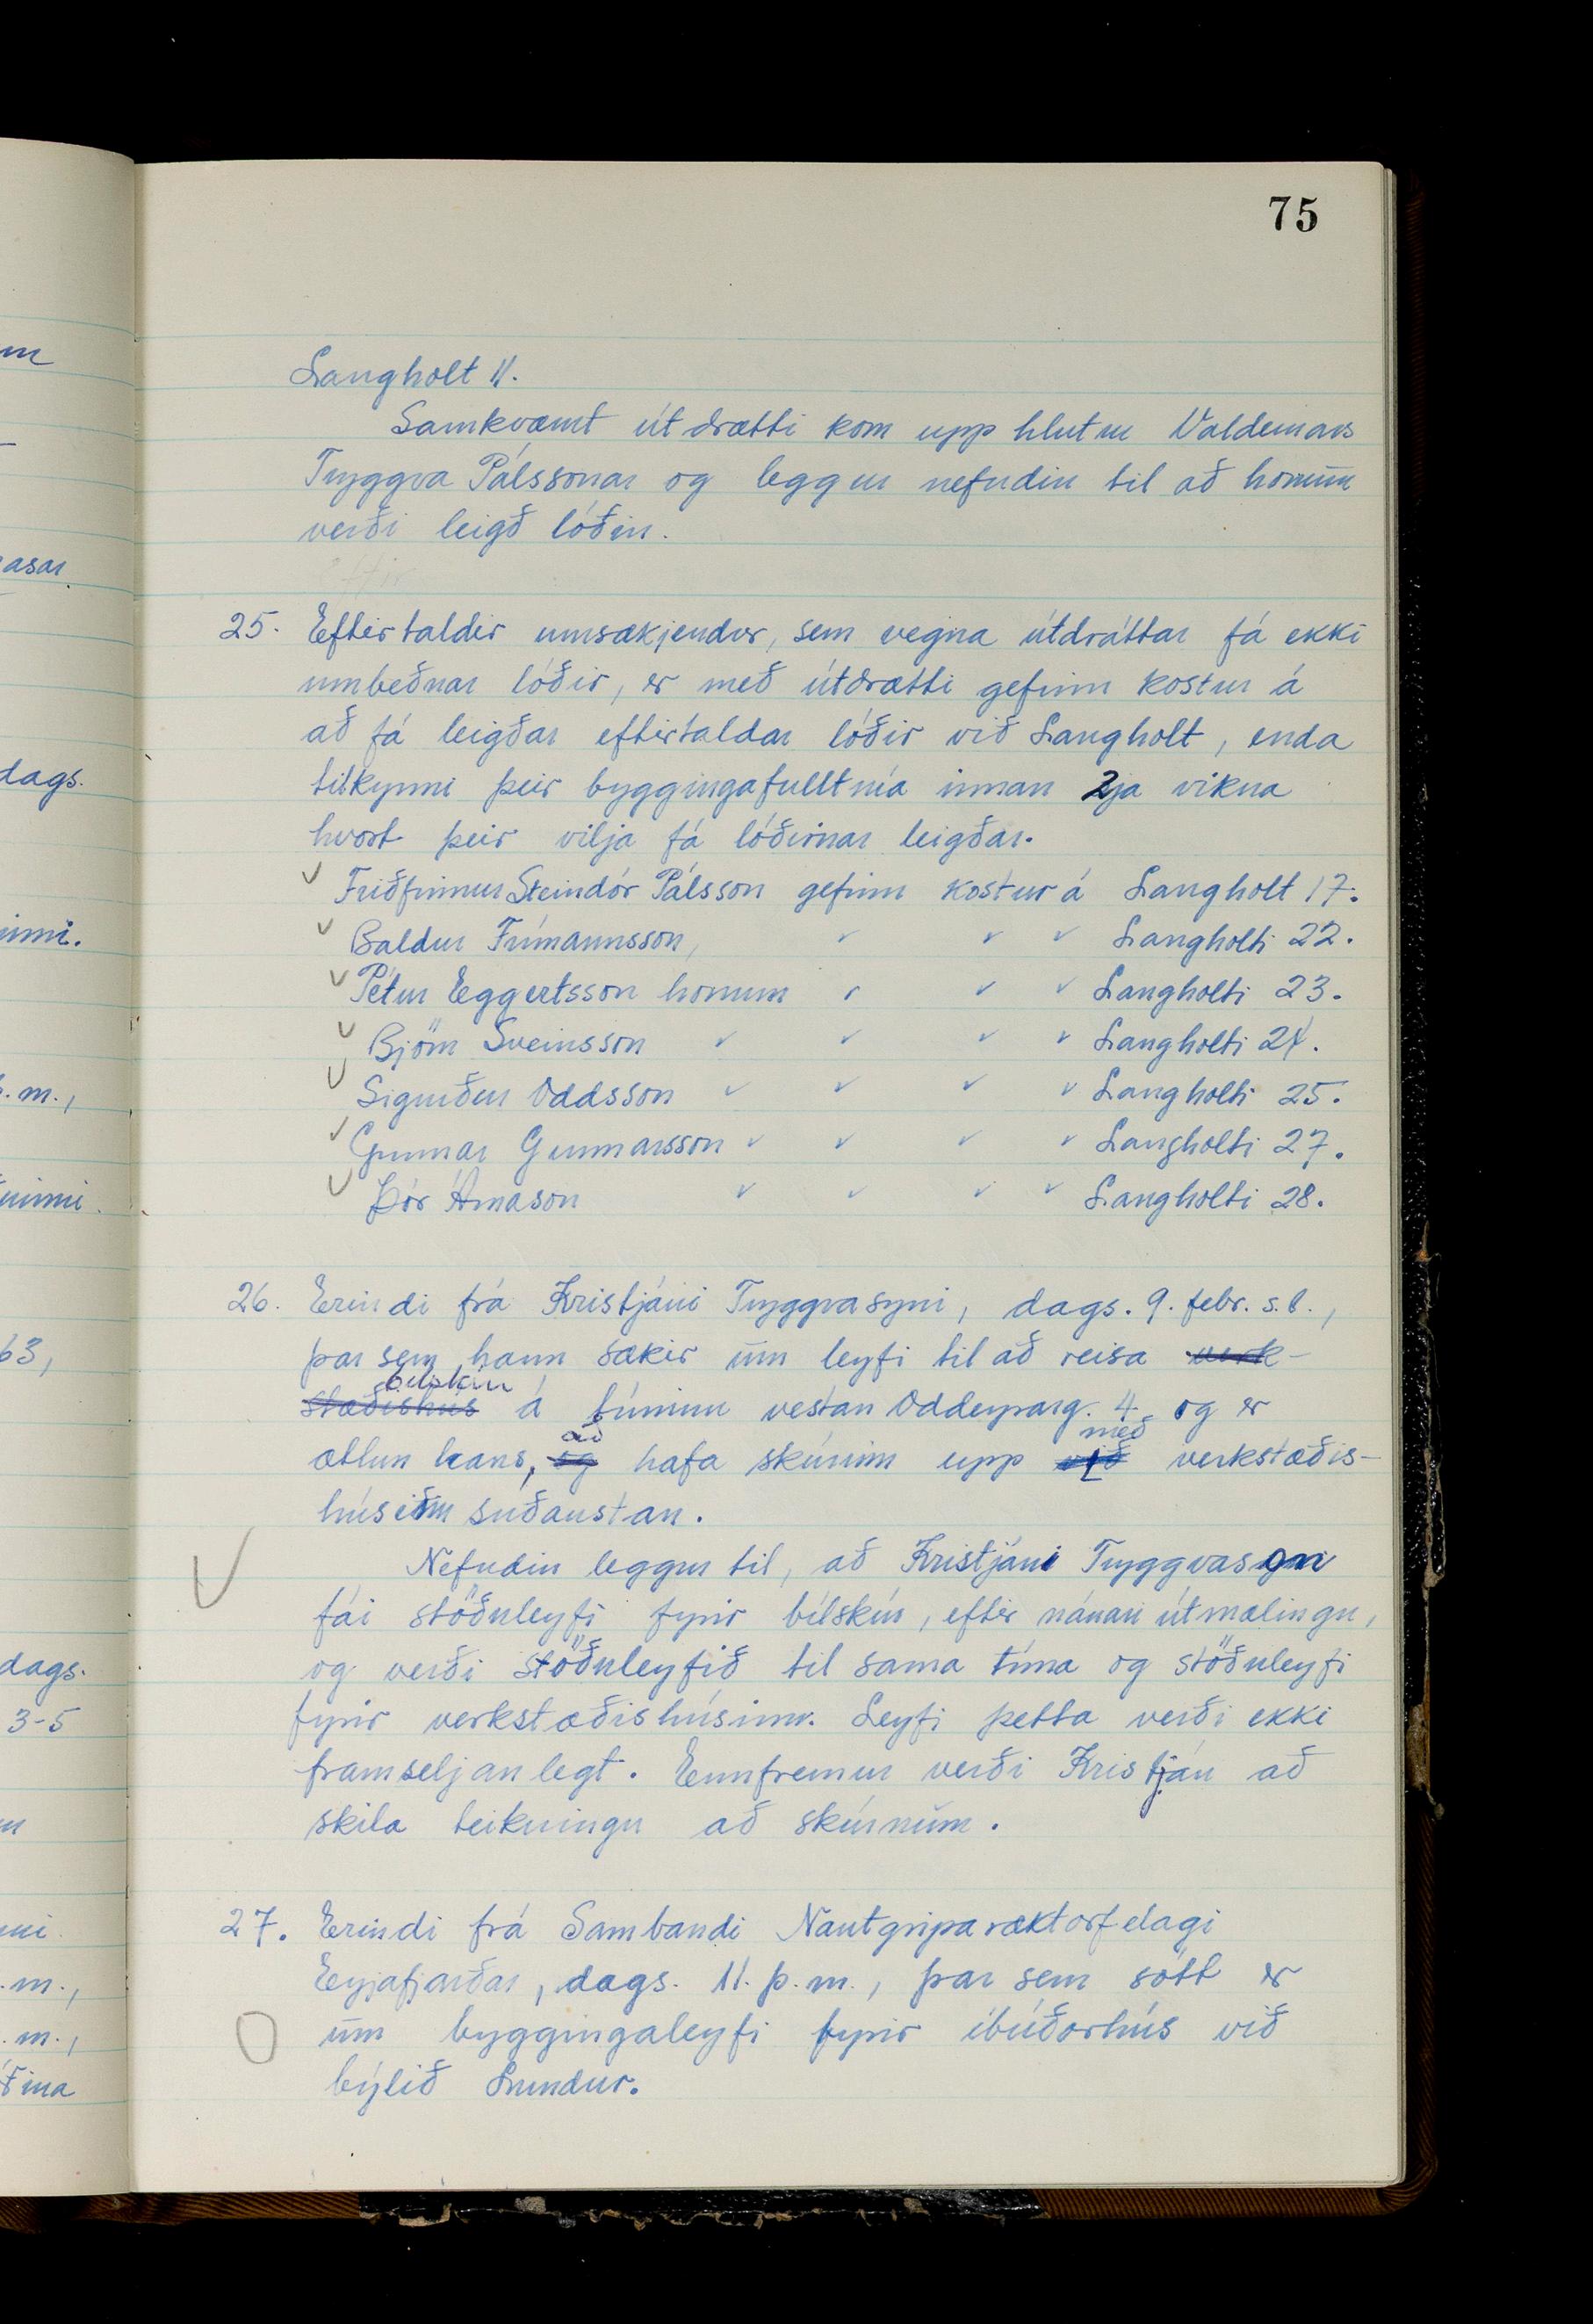 75
Langholt 11.
Samkvæmt útdrætti kom upp hlutur Valdemars
Tryggva Pálssonar og leggur nefndin til að honum
verði leigð lóðin.
25. Eftirtaldir umsækjendur, sem vegna útdráttar fá ekki
umbeðnar lóðir, er með útdrætti gefinn kostur á
að fá leigðar eftirtaldar lóðir við Langholt, enda
tilkynni þeir byggingafulltrúa innan 2ja vikna
hvort þeir vilja fá lóðirnar leigðar.
✓ Friðfinnur Steindór Pálsson gefinn kostur á Langholt 17.
✓ Baldur Frímannsson, ✓ ✓ ✓ Langholti 22.
✓ Pétur Eggertsson honum ✓ ✓ ✓ Langholti 23.
✓ Björn Sveinsson ✓ ✓ ✓ ✓ Langholti 24.
✓ Sigurður Oddsson ✓ ✓ ✓ ✓ Langholti 25.
✓ Gunnar Gunnarsson ✓ ✓ ✓ ✓ Langholti 27.
✓ Þór Árnason ✓ ✓ ✓ ✓ Langholti 28.
26. Erindi frá Kristjáni Tryggvasyni, dags. 9. febr. s.l.,
þar sem hann sækir um leyfi til að reisa verk-
bílskúr
stæðishús á túninu vestan Oddeyrarg. 4 og er
að með
ætlun hans, og hafa skúrinn upp við verkstæðis-
húsið suðaustan.
Nefndin leggur til, að Kristjáni Tryggvasyni
fái stöðuleyfi fyrir bílskúr, eftir nánari útmælingu,
og verði stöðuleyfið til sama tíma og stöðuleyfi
fyrir verkstæðishúsinu. Leyfi þetta verði ekki
framseljanlegt. Ennfremur verði Kristján að
skila teikningu að skúrnum.
27. Erindi frá Sambandi Nautgriparæktarfelagi
Eyjafjarðar, dags. 11. þ.m., þar sem sótt er
um byggingaleyfi fyrir íbúðarhús við
býlið Lundur.